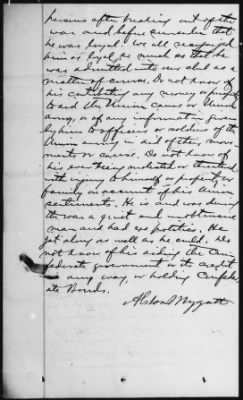 persons after breaking out of the
war and before surrender that
he was loyal. We all recognized
him as loyal as much so that he
was admitted into our club as a
matter of course. Do not know of
his contributing any money or property
to aid the Union cause or Union
army, or of any information given
by him to officers or soldiers of the
Union army in aid of their move-
ments or cause. Do not know of
his ever being molested or threatened
with injury to himself or property or
family on account of his Union
sentiments. He is and was during
the war a quiet and unobtrusive
man and had no politics. He
got along as well as he could. Do
not know of his aiding the Con-
federate government or its credit
in any way, or holding Confeder-
ate Bonds.
Alston Mygatt